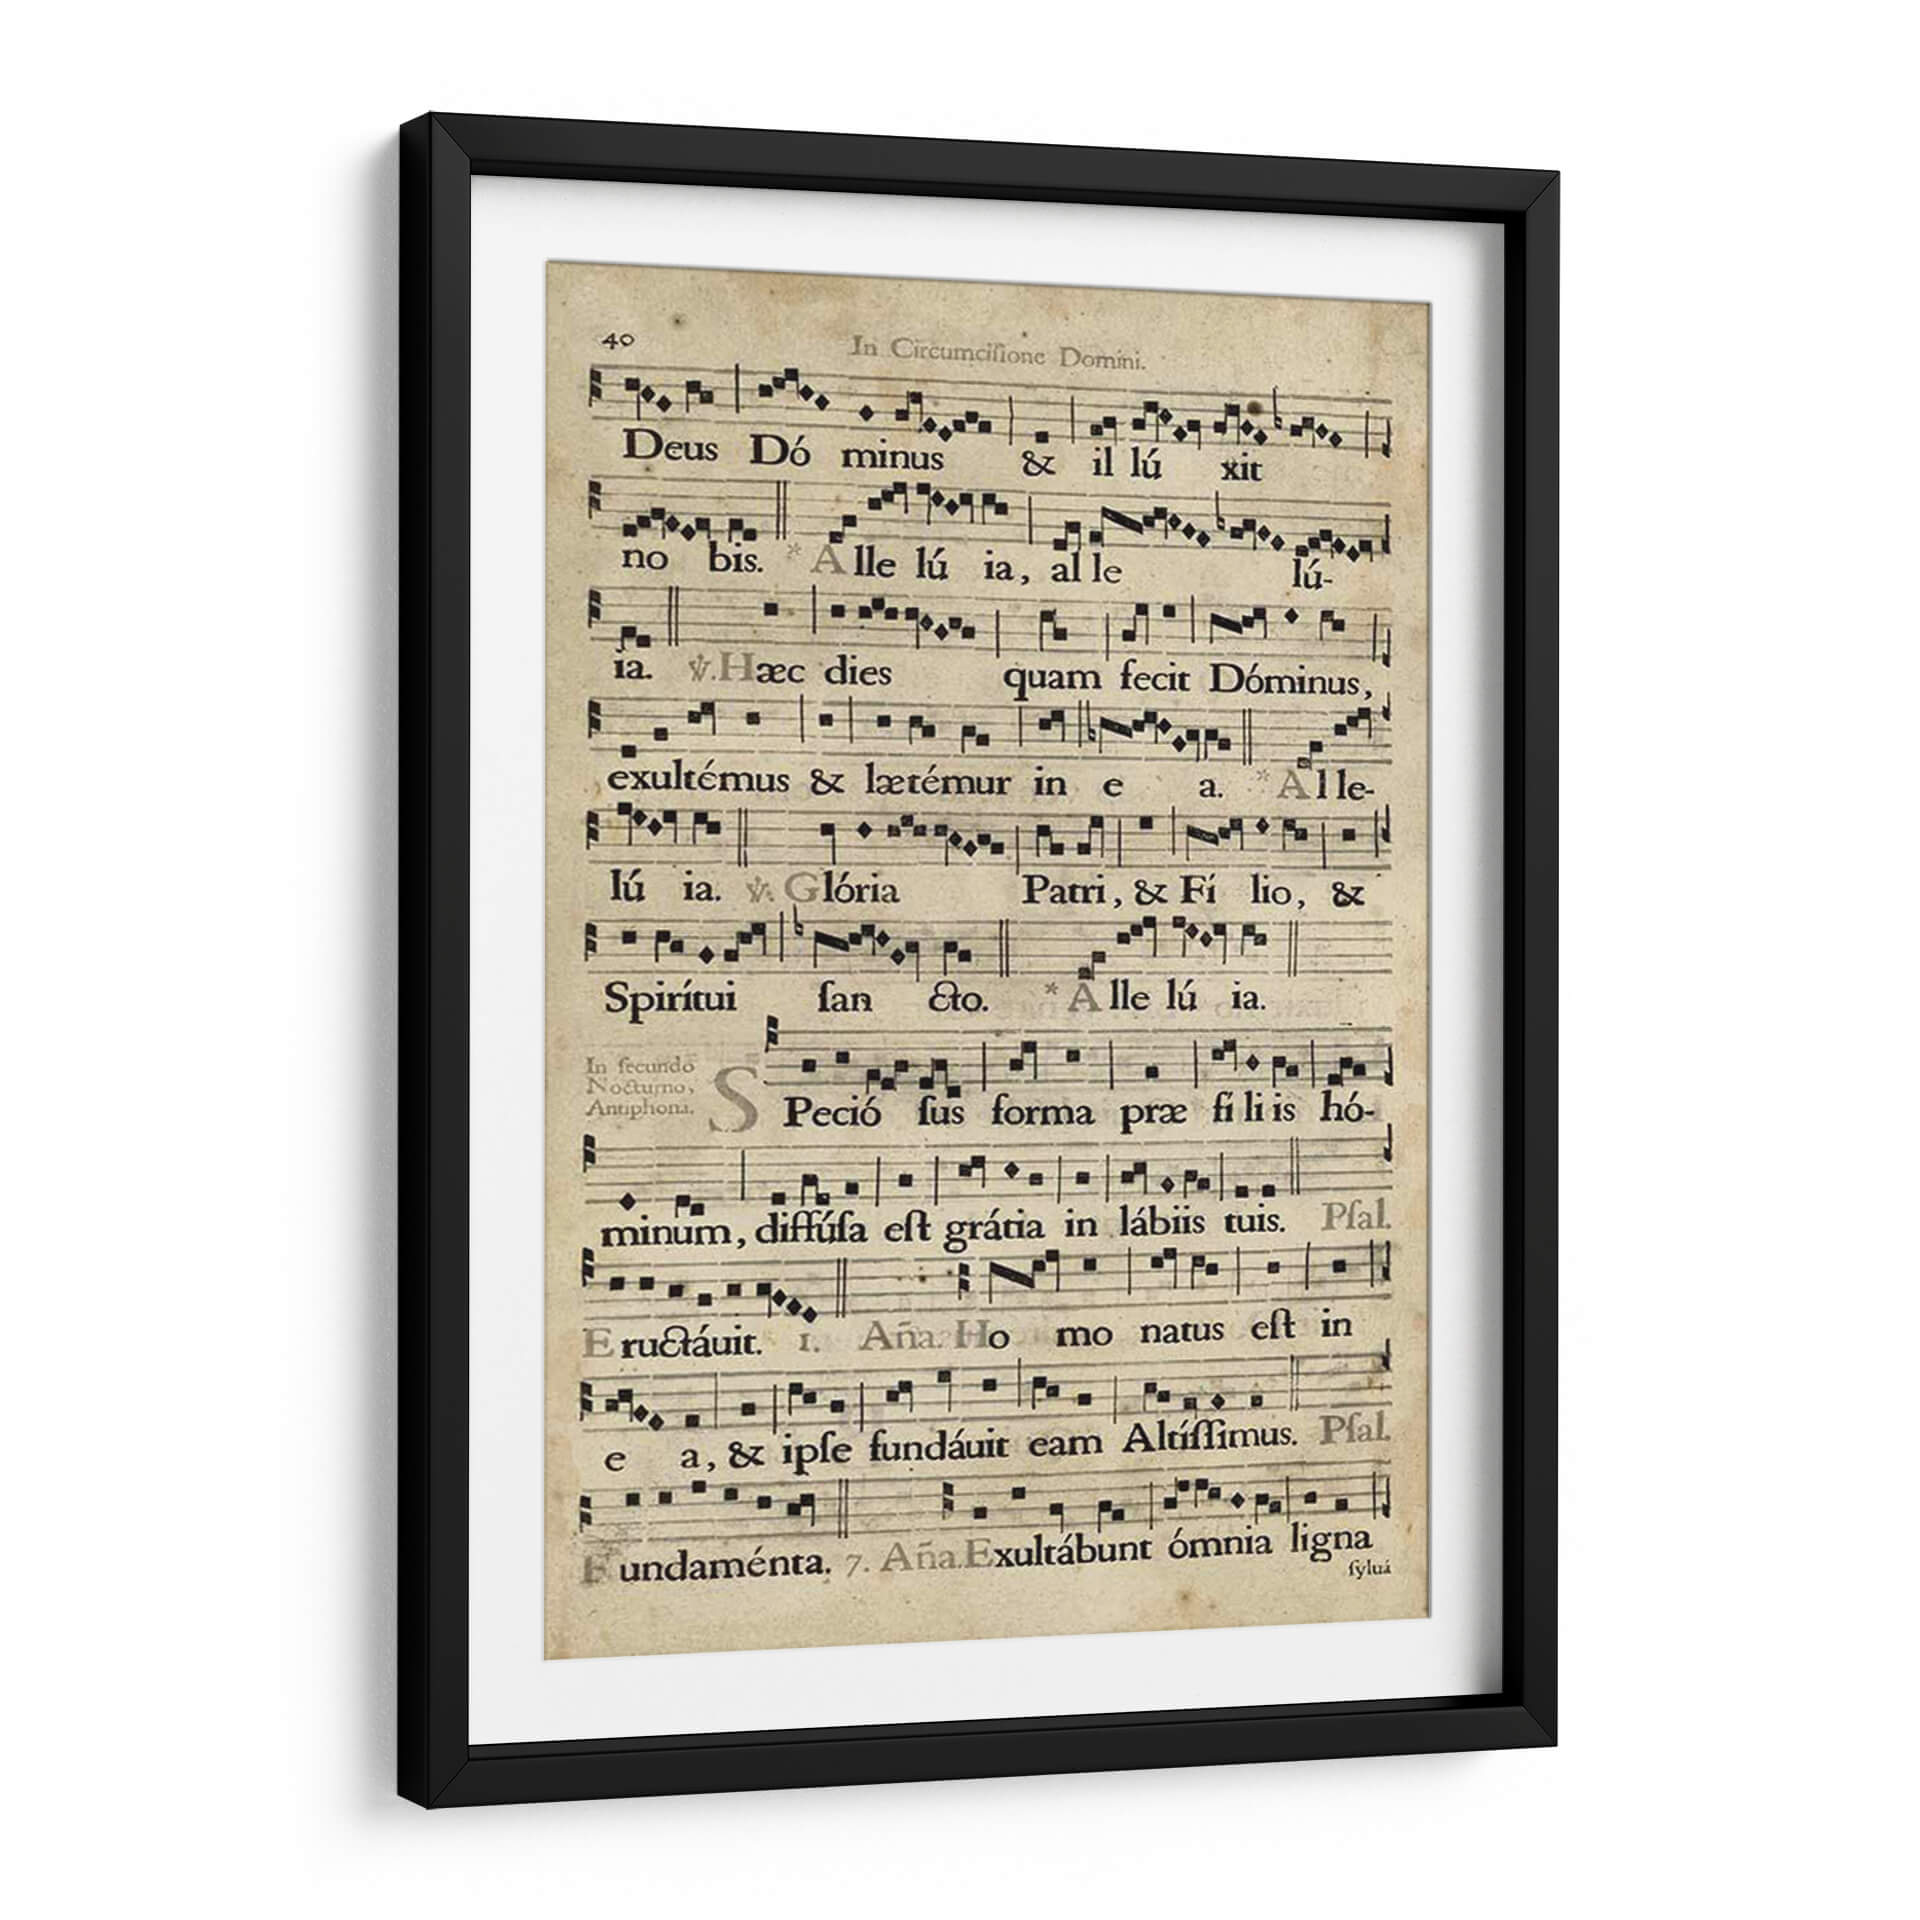 40
In Circumciſione Domini.
Deus Dó minus & il lú xit
no bis. * A lle lú ia, al le lú-
ia. ℣. Hæc dies quam fecit Dóminus,
exultémus & lætémur in e a. * Al le-
lú ia. ℣. Glória Patri, & Fí lio, &
Spirítui ſan cto. * A lle lú ia.
In ſecundo
Nocturno,
Antiphona.
S Peció ſus forma præ fí li is hó-
minum, diffúſa eſt grátia in lábiis tuis. Pſal.
Eructáuit. 1. Aña. Ho mo natus eſt in
e a, & ipſe fundáuit eam Altíſſimus. Pſal.
Fundaménta. 7. Aña. Exultábunt ómnia ligna
ſyluá